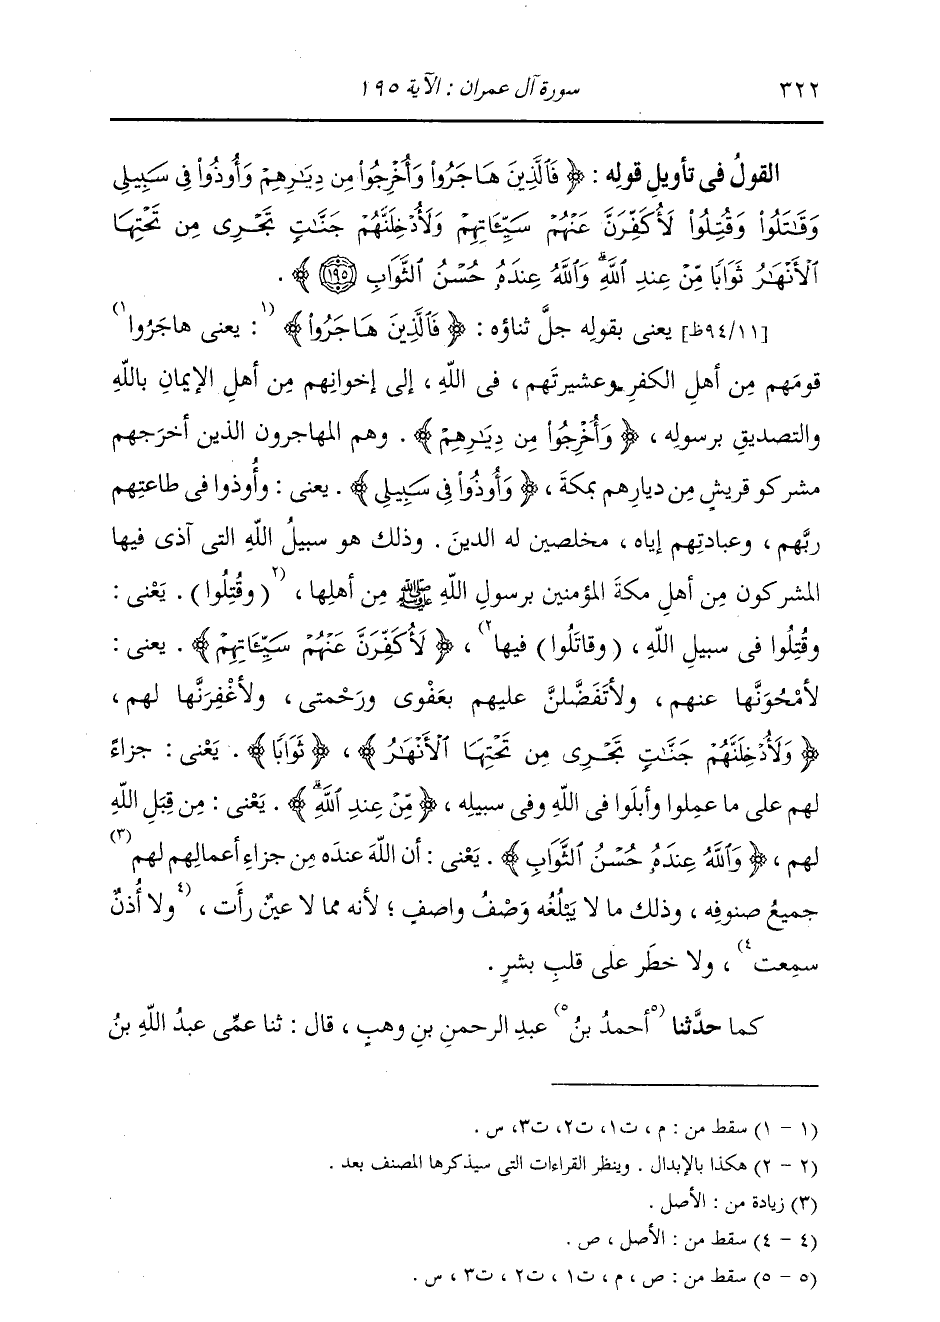 ٣٢٢ سورة آل عمران : الآية ١٩٥
القولُ فى تأويلِ قولِه : ﴿ فَٱلَّذِينَ هَاجَرُوا۟ وَأُخْرِجُوا۟ مِن دِيَـٰرِهِمْ وَأُوذُوا۟ فِى سَبِيلِى
وَقَـٰتَلُوا۟ وَقُتِلُوا۟ لَأُكَفِّرَنَّ عَنْهُمْ سَيِّـَٔاتِهِمْ وَلَأُدْخِلَنَّهُمْ جَنَّـٰتٍ تَجْرِى مِن تَحْتِهَا
ٱلْأَنْهَـٰرُ ثَوَابًا مِّنْ عِندِ ٱللَّهِ ۗ وَٱللَّهُ عِندَهُۥ حُسْنُ ٱلثَّوَابِ ١٩٥ ﴾ .
[١١/٩٤ظ] يعنى بقولِه جلَّ ثناؤه : ﴿ فَٱلَّذِينَ هَاجَرُوا۟ ﴾ (١) : يعنى هاجَرُوا (١)
قومَهم مِن أهلِ الكفرِ وعشيرتَهم ، فى اللَّهِ ، إلى إخوانِهم مِن أهلِ الإيمانِ باللَّهِ
والتصديقِ برسولِه ، ﴿ وَأُخْرِجُوا۟ مِن دِيَـٰرِهِمْ ﴾ . وهم المهاجرون الذين أخرَجهم
مشركو قريشٍ مِن ديارِهم بمكةَ ، ﴿ وَأُوذُوا۟ فِى سَبِيلِى ﴾ . يعنى : وأُوذوا فى طاعتِهم
ربَّهم ، وعبادتِهم إياه ، مخلصين له الدينَ . وذلك هو سبيلُ اللَّهِ التى آذى فيها
المشركون مِن أهلِ مكةَ المؤمنين برسولِ اللَّهِ ﷺ مِن أهلِها ، (٢) ( وقُتِلُوا ) . يَعْنى :
وقُتِلُوا فى سبيلِ اللَّهِ ، ( وقاتَلُوا ) فيها (٢) ، ﴿ لَأُكَفِّرَنَّ عَنْهُمْ سَيِّـَٔاتِهِمْ ﴾ . يعنى :
لأَمْحُوَنَّها عنهم ، ولأتَفَضَّلنَّ عليهم بعَفْوى ورَحْمتى ، ولأغْفِرَنَّها لهم ،
﴿ وَلَأُدْخِلَنَّهُمْ جَنَّـٰتٍ تَجْرِى مِن تَحْتِهَا ٱلْأَنْهَـٰرُ ﴾ ، ﴿ ثَوَابًا ﴾ . يَعْنى : جزاءً
لهم على ما عمِلوا وأبلَوا فى اللَّهِ وفى سبيلِه ، ﴿ مِّنْ عِندِ ٱللَّهِ ۗ ﴾ . يَعْنى : مِن قِبَلِ اللَّهِ
لهم ، ﴿ وَٱللَّهُ عِندَهُۥ حُسْنُ ٱلثَّوَابِ ﴾ . يَعْنى : أن اللَّهَ عندَه مِن جزاءِ أعمالِهم لهم (٣)
جميعُ صنوفِه ، وذلك ما لا يَبْلُغُه وَصْفُ واصفٍ ؛ لأنه مما لا عينٌ رأَت ، (٤) ولا أُذنٌ
سمِعت (٤) ، ولا خطَر على قلبِ بشرٍ .
كما حدَّثنا (٥) أحمدُ بنُ (٥) عبدِ الرحمنِ بنِ وهبٍ ، قال : ثنا عمِّى عبدُ اللَّهِ بنُ
(١ - ١) سقط من : م ، ت١، ت٢، ت٣، س .
(٢ - ٢) هكذا بالإبدال . وينظر القراءات التى سيذكرها المصنف بعد .
(٣) زيادة من : الأصل .
(٤ - ٤) سقط من : الأصل ، ص .
(٥ - ٥) سقط من : ص ، م ، ت١ ، ت٢ ، ت٣ ، س .